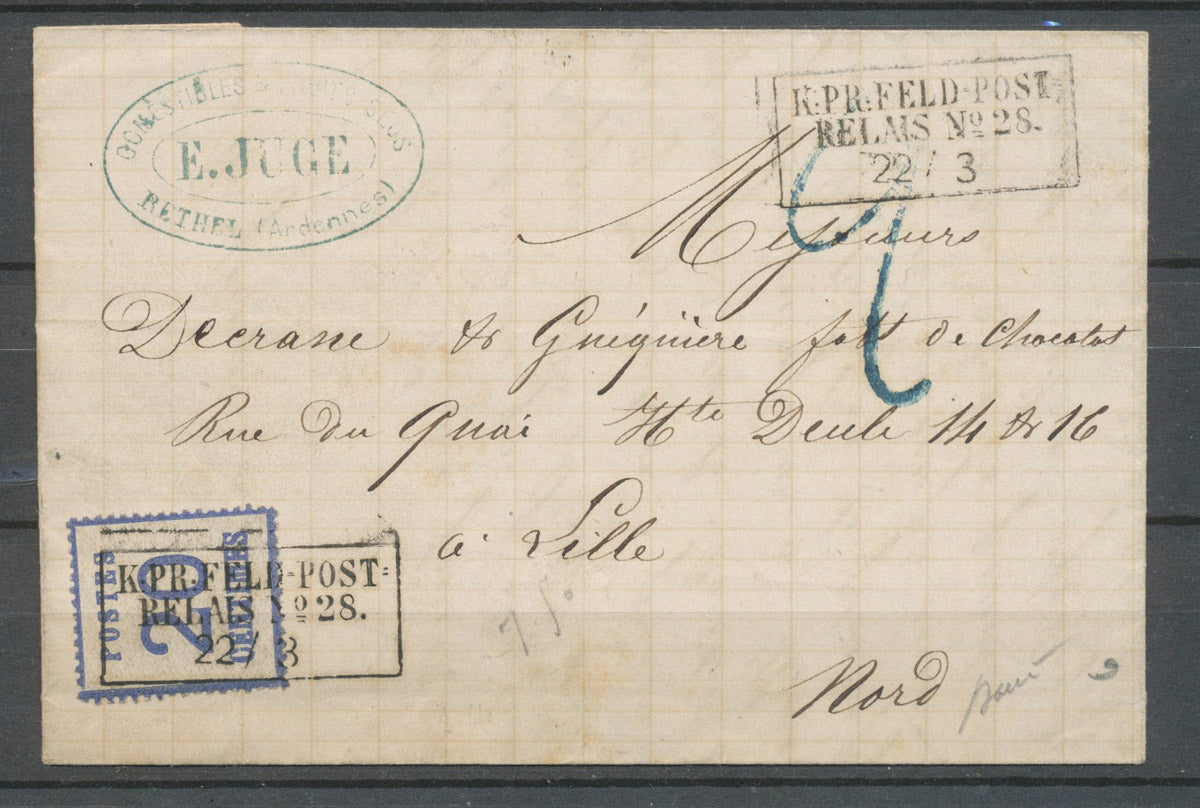 COMESTIBLES &
E. JUGE
RETHEL (Ardennes)
K:PR:FELD-POST-
RELAIS No 28.
22 / 3
Messieurs
Decrane & Guéguière fabt de Chocolat
Rue du Quai Hte Deule 14 & 16
à Lille
Nord
POSTES
20
CENTIMES
K:PR:FELD-POST-
RELAIS No 28.
22 / 3